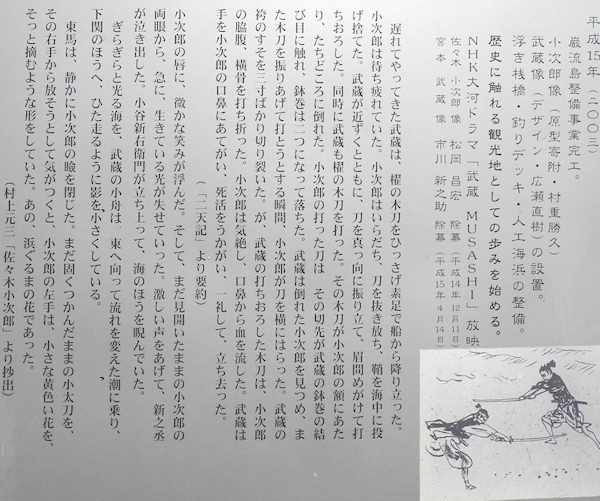 平成15年(二〇〇三)
巌流島整備事業完工。
小次郎像(原型寄附・村重勝久)
武蔵像(デザイン・広瀬直樹)の設置。
浮き桟橋・釣りデッキ・人工海浜の整備。
歴史に触れる観光地としての歩みを始める。
NHK大河ドラマ「武蔵 MUSASHI」放映
佐々木 小次郎像 松岡 昌宏 除幕(平成14年12月11日)
宮本 武蔵像 市川 新之助 除幕(平成15年4月14日)
遅れてやってきた武蔵は、櫂の木刀をひっさげ素足で船から降り立った。
小次郎は待ち疲れていた。小次郎はいらだち、刀を抜き放ち、鞘を海中に投
げ捨てた。武蔵が近ずくとともに、刀を真っ向に振り立て、眉間めがけて打
ちおろした。同時に武蔵も櫂の木刀を打った。その木刀が小次郎の額にあた
り、たちどころに倒れた。小次郎の打った刀は その切先が武蔵の鉢巻の結
び目に触れ、鉢巻は二つになって落ちた。武蔵は倒れた小次郎を見つめ、ま
た木刀を振りあげて打とうとする瞬間、小次郎が刀を横にはらった。武蔵の
袴のすそを三寸ばかり切り裂いた。が、武蔵の打ちおろした木刀は、小次郎
の脇腹、横骨を打ち折った。 小次郎は気絶し、口鼻から血を流した。武蔵は
手を小次郎の口鼻にあてがい、死活をうかがい、一礼して、立ち去った。
(「二天記」より要約)
小次郎の唇に、微かな笑みが浮んだ。そして、まだ見開いたままの小次郎の
両眼から、急に、生きている光が失せていった。激しい声をあげて、新之丞
が泣き出した。小谷新右衛門が立ち上って、海のほうを睨んでいた。
ぎらぎらと光る海を、武蔵の小舟は、東へ向って流れを変えた潮に乗り、
下関のほうへ、ひた走るように影を小さくしている。
東馬は、静かに小次郎の瞼を閉じた。まだ固くつかんだままの小太刀を、
その右手から放そうとして気がつくと、小次郎の左手は、小さな黄色い花を、
そっと摘むような形をしていた。あの、浜ぐるまの花であった。
(村上元三「佐々木小次郎」より抄出)